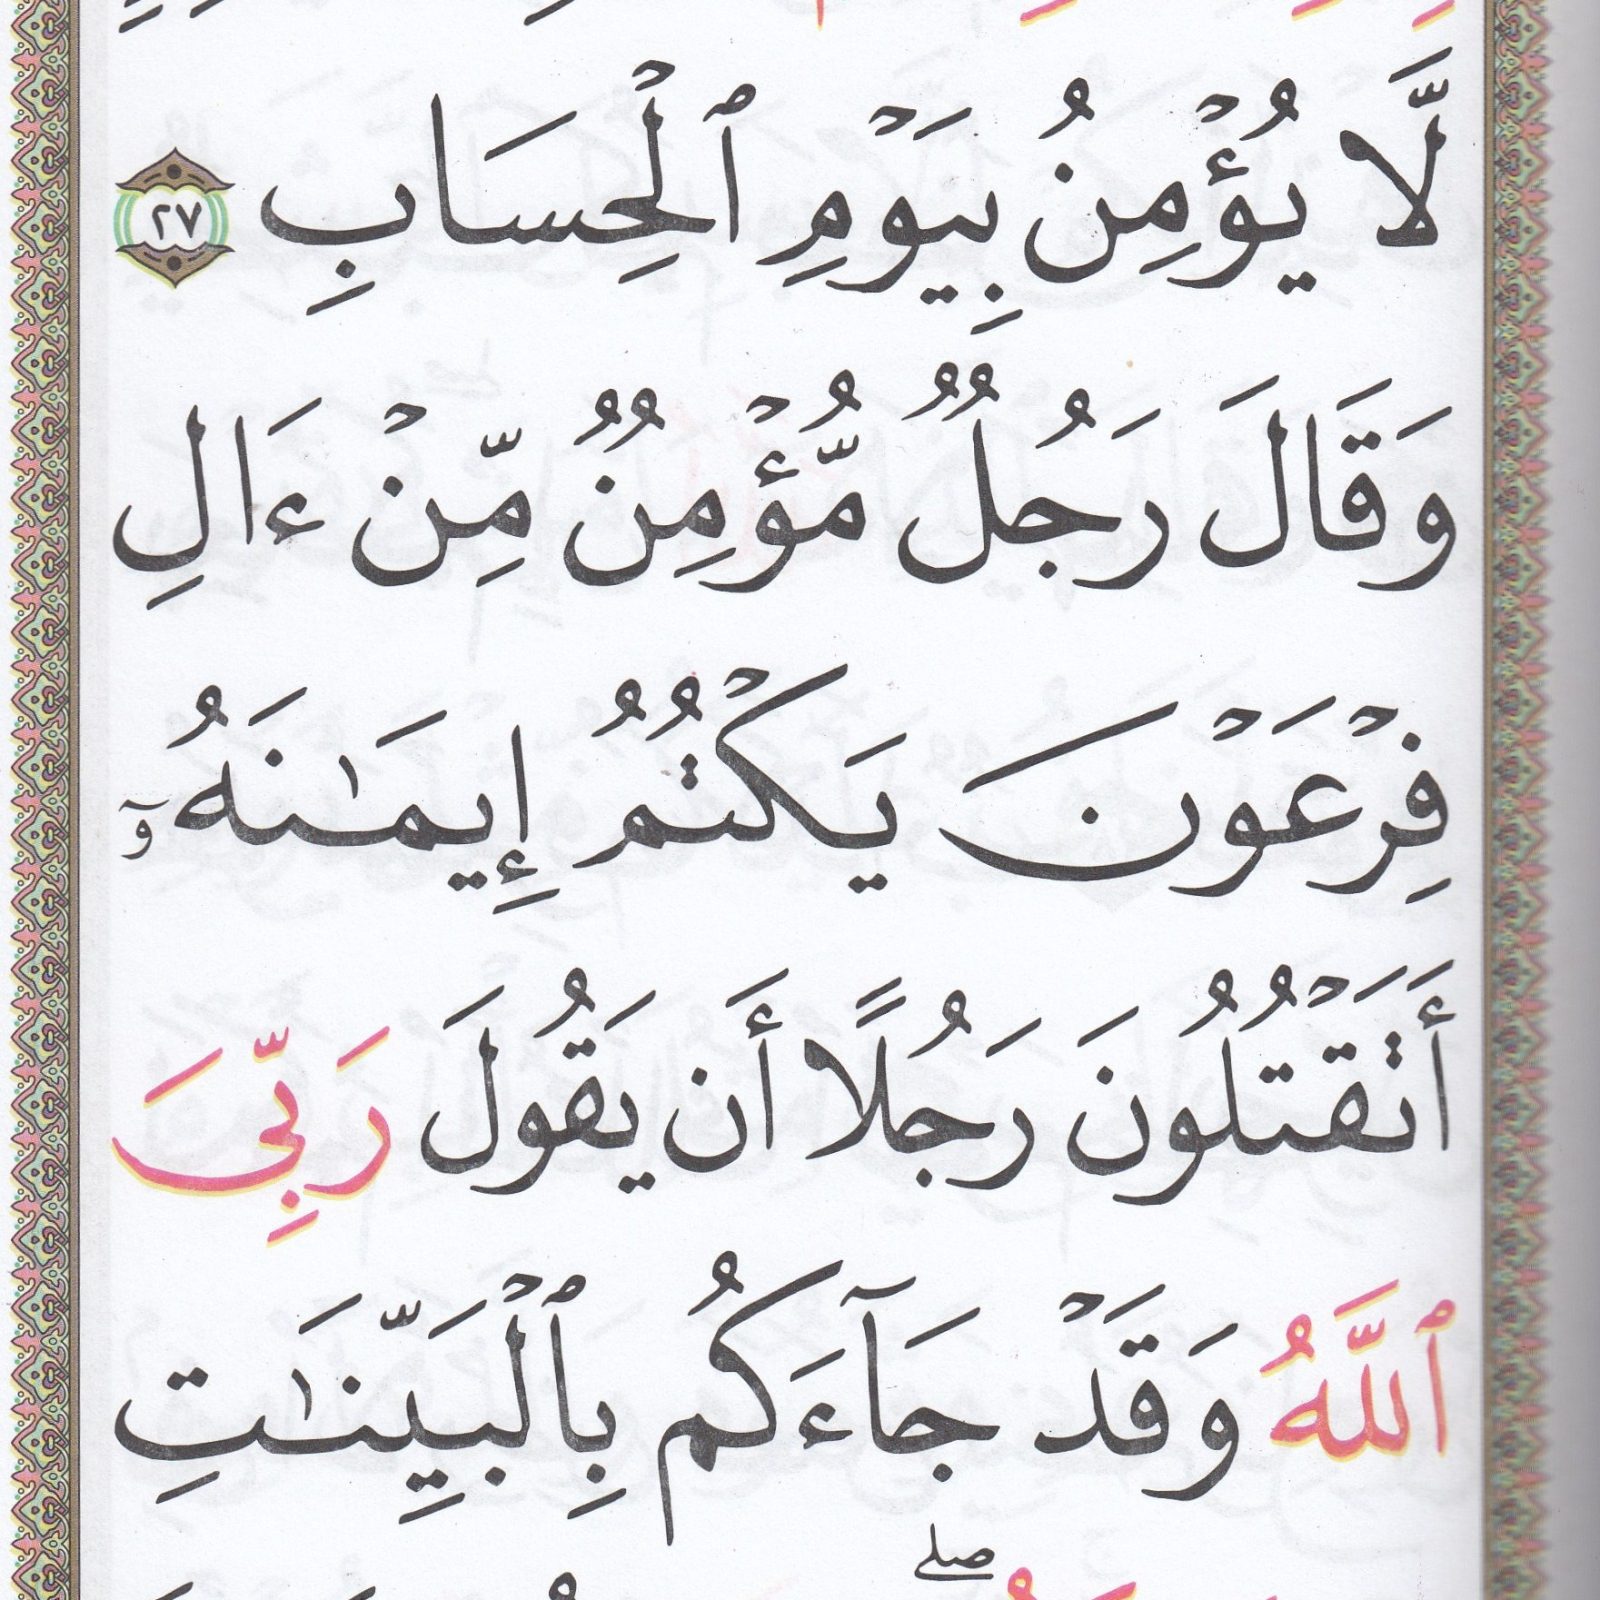 لَّا يُؤْمِنُ بِيَوْمِ ٱلْحِسَابِ ٢٧
وَقَالَ رَجُلٌ مُّؤْمِنٌ مِّنْ ءَالِ
فِرْعَوْنَ يَكْتُمُ إِيمَٰنَهُۥٓ
أَتَقْتُلُونَ رَجُلًا أَن يَقُولَ رَبِّىَ
ٱللَّهُ وَقَدْ جَآءَكُم بِٱلْبَيِّنَٰتِ